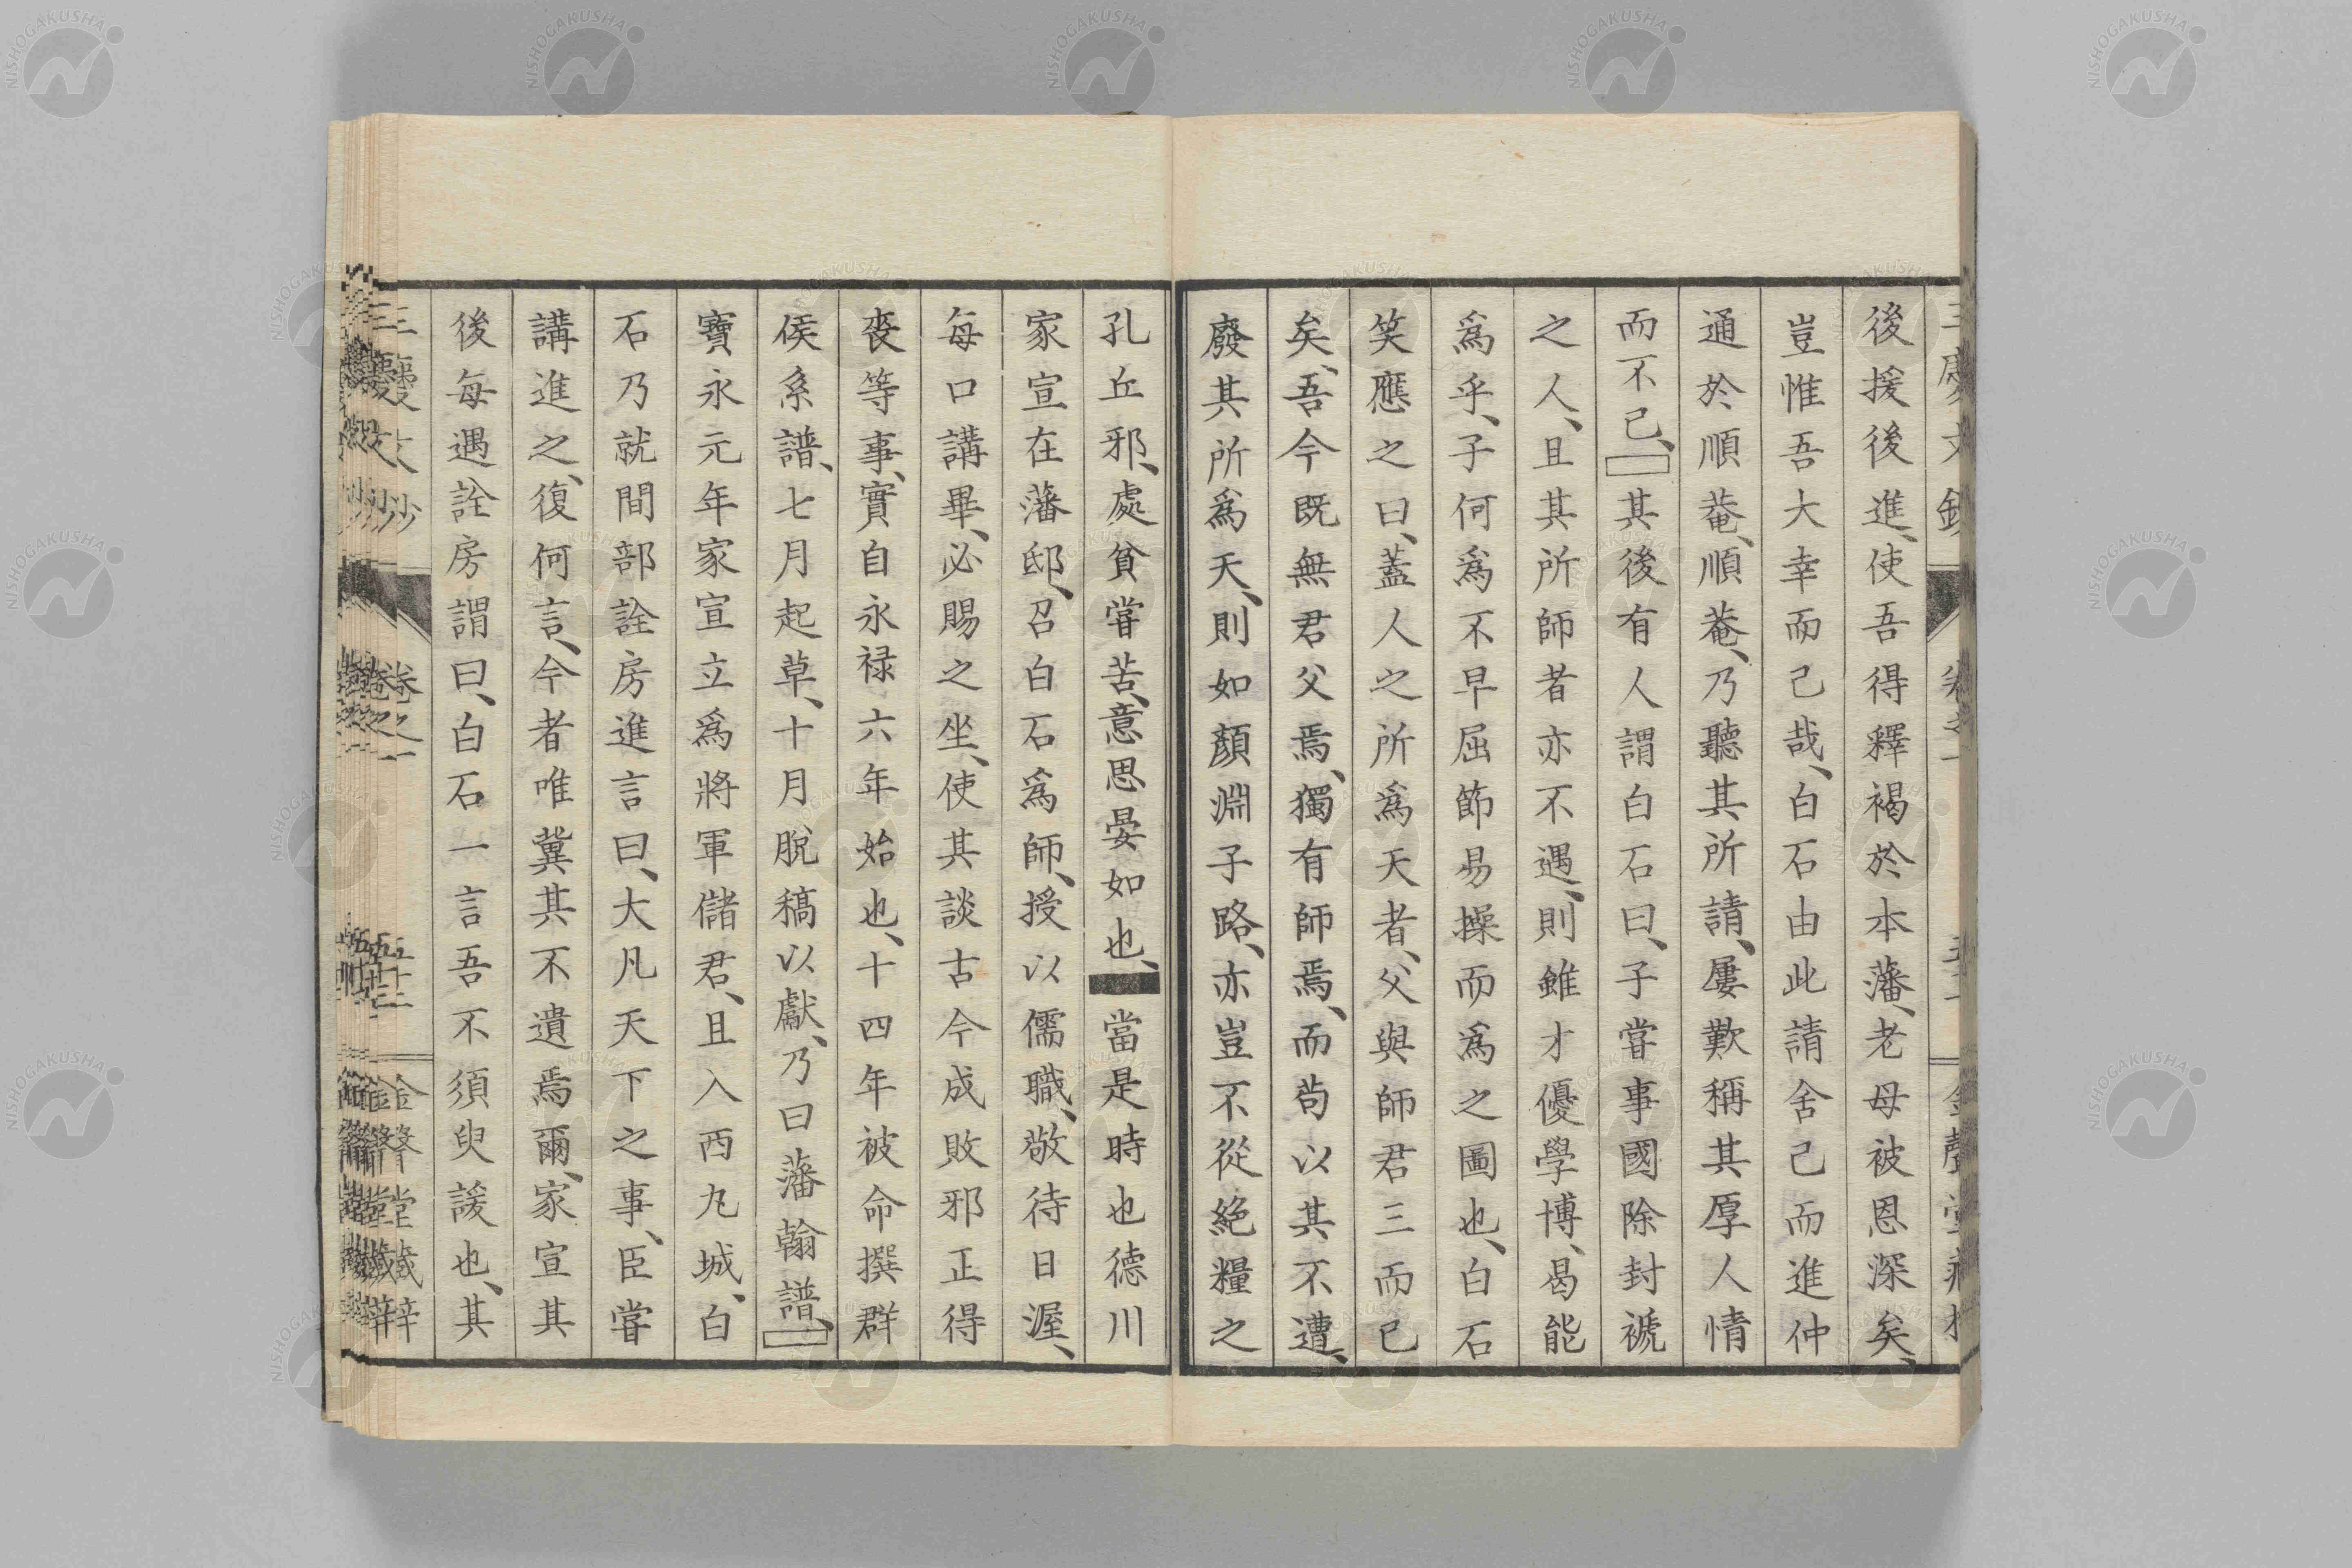 後援後進、使吾得釋褐於本藩、老母被恩深矣、
豈惟吾大幸而己哉、白石由此請舍己而進仲
通於順菴、順菴、乃聽其所請、屢歎稱其厚人情
而不已、其後有人謂白石曰、子嘗事國除封褫
之人、且其所師者亦不遇、則雖才優學博、曷能
爲乎、子何爲不早屈節易操而爲之圖也、白石
笑應之曰、蓋人之所爲天者、父與師君三而已
矣、吾今既無君父焉、獨有師焉、而苟以其不遭、
廢其所爲天、則如顏淵子路、亦豈不從絕糧之
孔丘邪、處貧嘗苦、意思晏如也、當是時也德川
家宣在藩邸、召白石爲師、授以儒職、敬待日渥、
每口講畢、必賜之坐、使其談古今成敗邪正得
喪等事、實自永禄六年始也、十四年被命撰群
侯系譜、七月起草、十月脫稿以獻、乃曰藩翰譜、
寶永元年家宣立爲將軍儲君、且入西九城、白
石乃就間部詮房進言曰、大凡天下之事、臣嘗
講進之、復何言、今者唯冀其不遺焉爾、家宣其
後每遇詮房謂曰、白石一言吾不須臾諼也、其